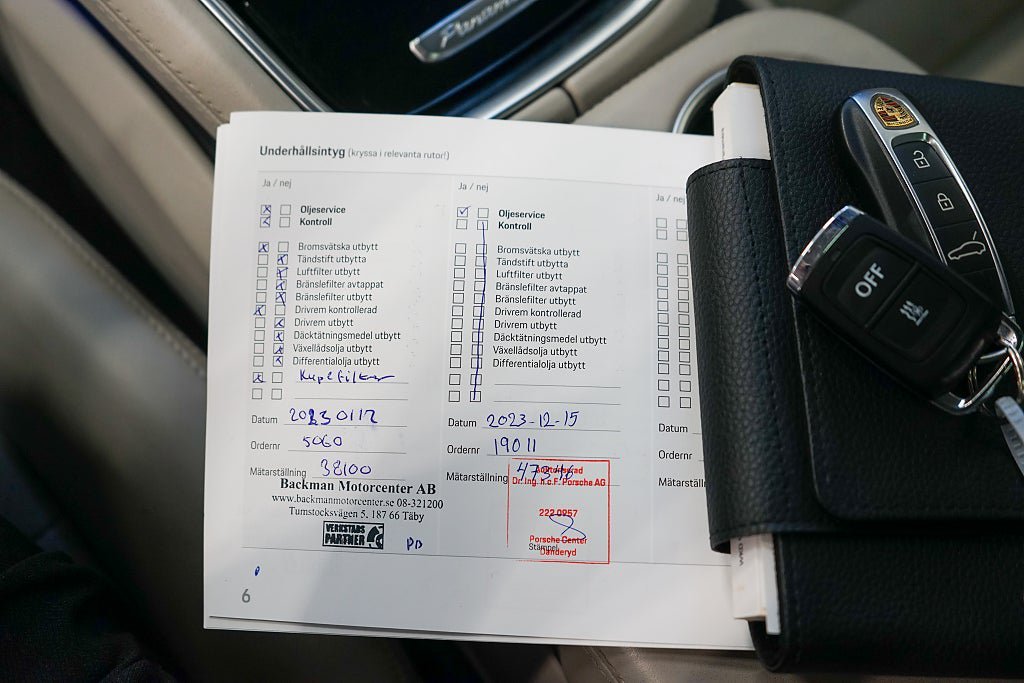 Panam
Underhållsintyg (kryssa i relevanta rutor!)
Ja / nej
Oljeservice
Kontroll
Bromsvätska utbytt
Tändstift utbytta
Luftfilter utbytt
Bränslefilter avtappat
Bränslefilter utbytt
Drivrem kontrollerad
Drivrem utbytt
Däcktätningsmedel utbytt
Växellådsolja utbytt
Differentialolja utbytt
Kupéfilter
Datum 20230117
Ordernr 5060
Mätarställning 38100
Backman Motorcenter AB
www.backmanmotorcenter.se 08-321200
Tumstocksvägen 5, 187 66 Täby
VERKSTADS
PARTNER
6
Ja / nej
Oljeservice
Kontroll
Bromsvätska utbytt
Tändstift utbytta
Luftfilter utbytt
Bränslefilter avtappat
Bränslefilter utbytt
Drivrem kontrollerad
Drivrem utbytt
Däcktätningsmedel utbytt
Växellådsolja utbytt
Differentialolja utbytt
Datum 2023-12-15
Ordernr 19011
Mätarställning
Auktoriserad
Dr. Ing. h.c.F. Porsche AG
222 0957
Porsche Center
Stämpel
Danderyd
Ja / nej
Datum
Ordernr
Mätarställn
OFF